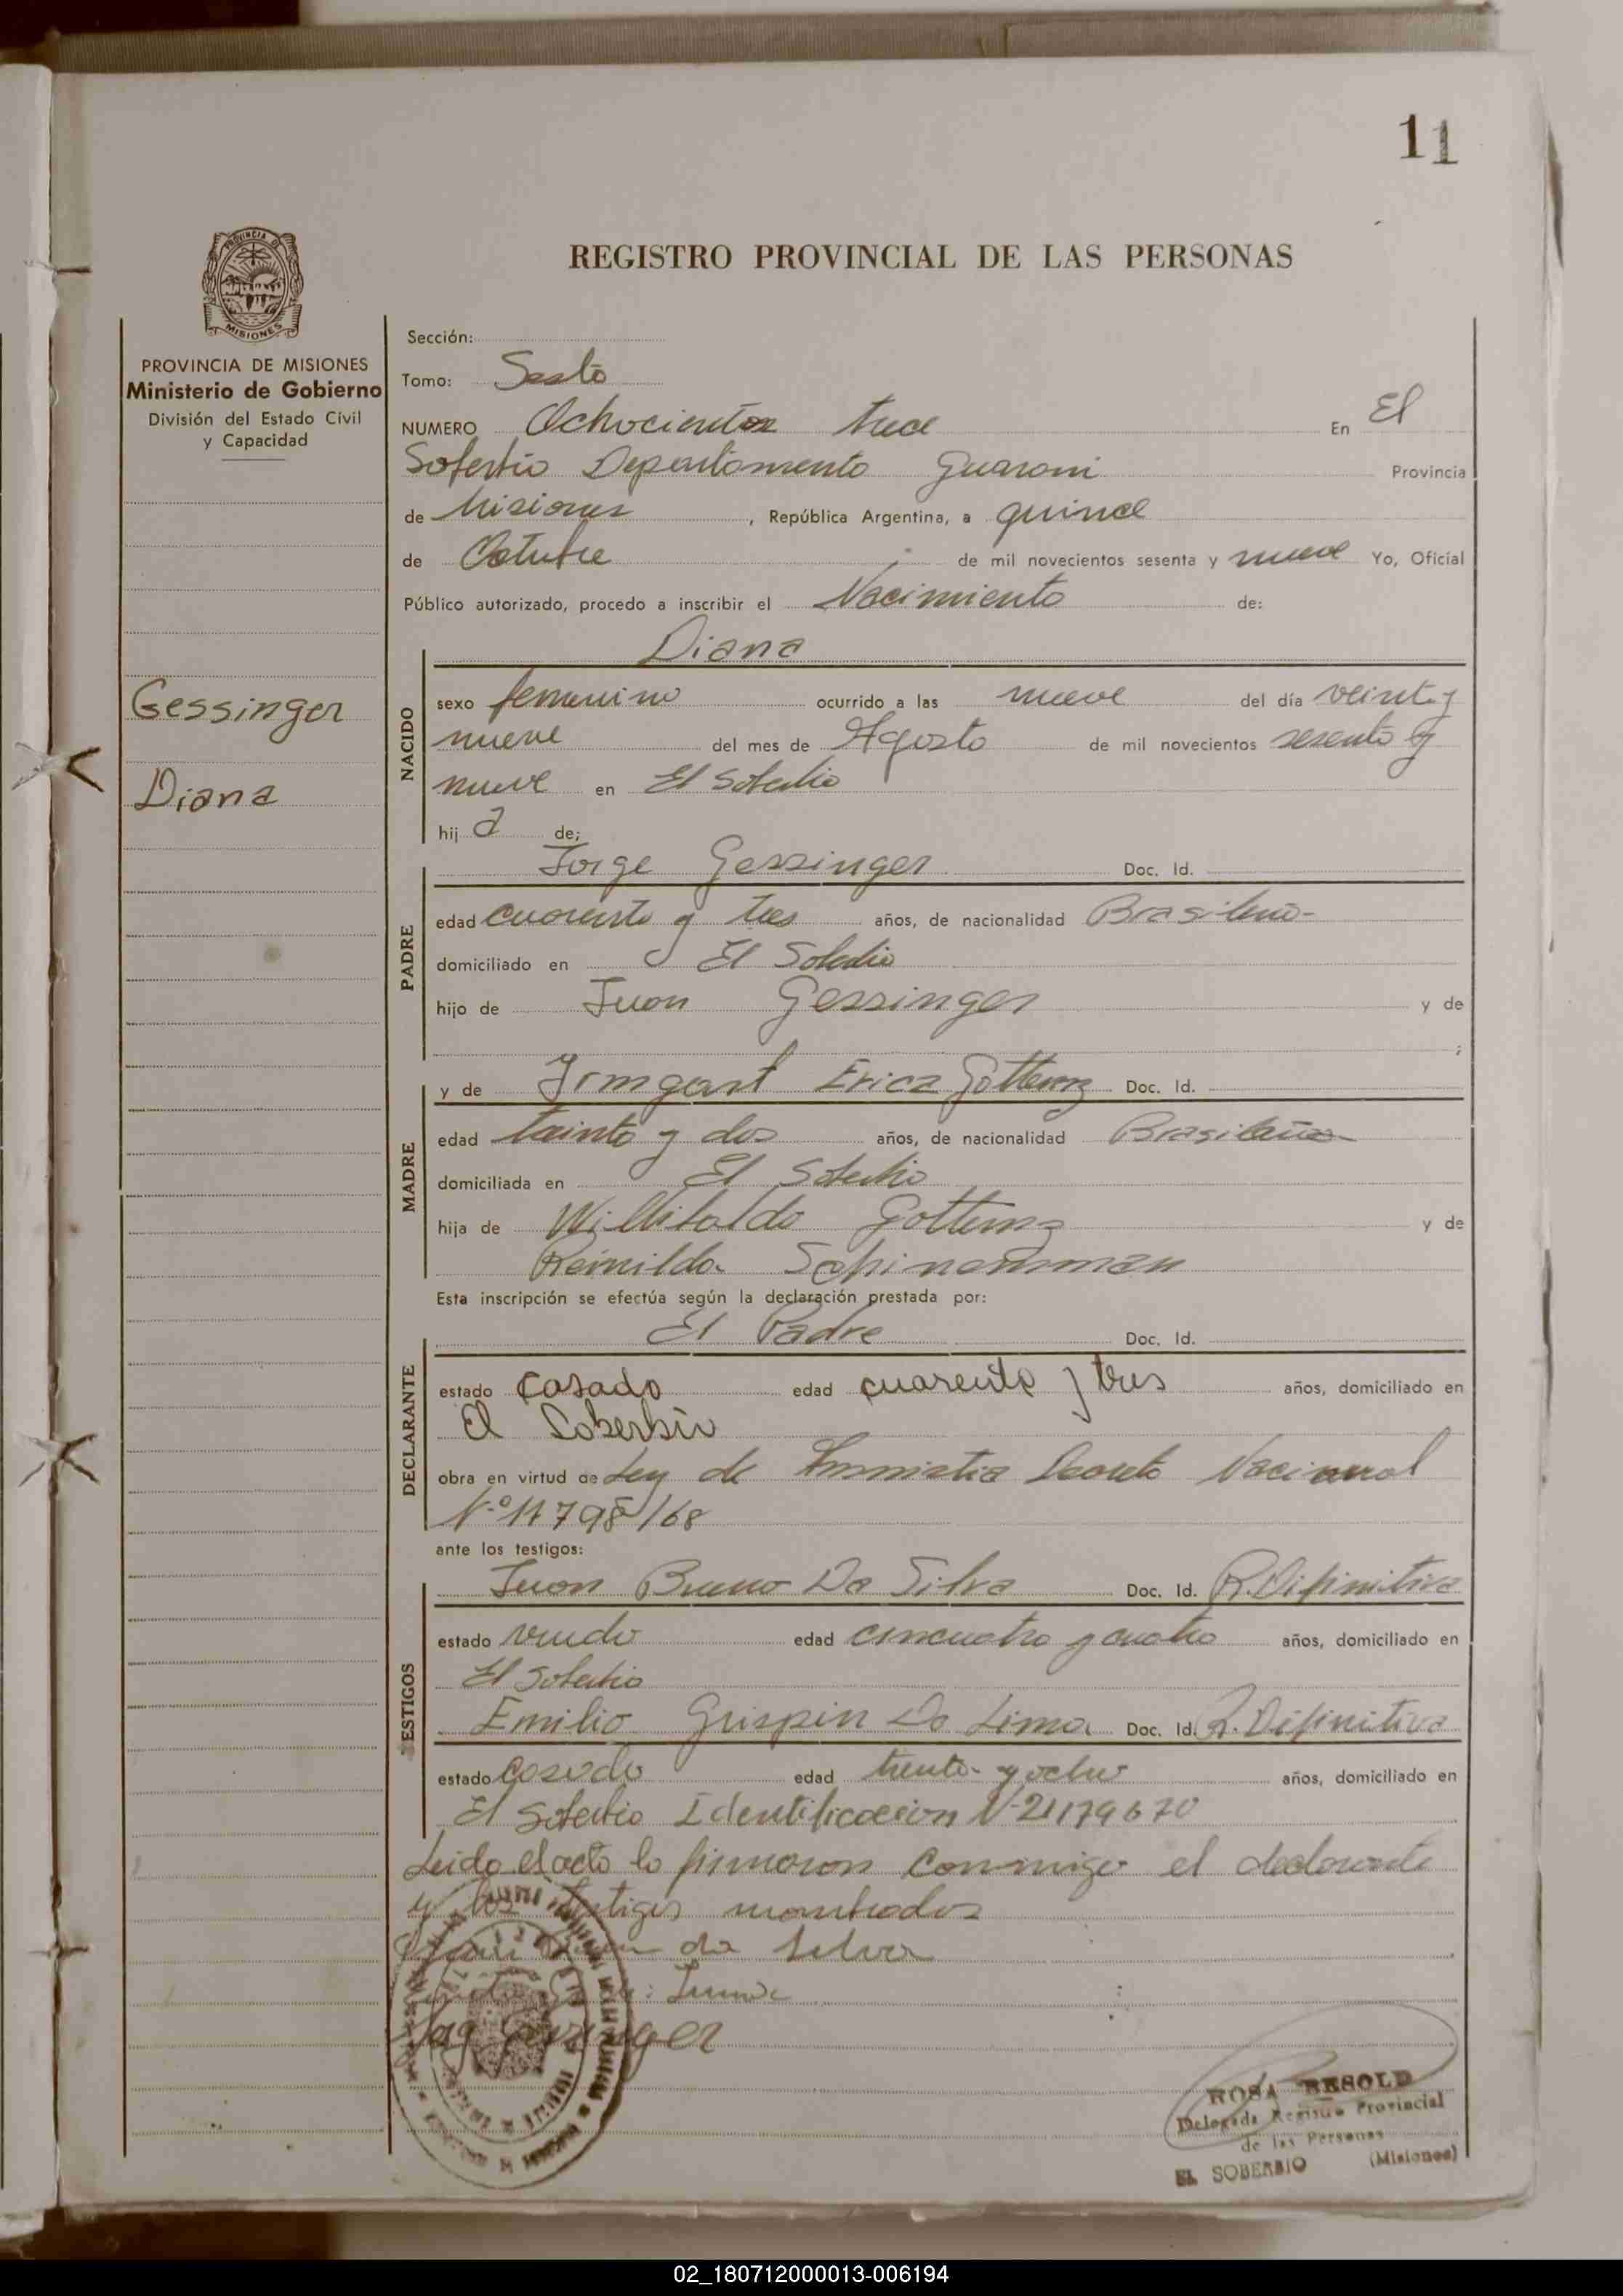 11
REGISTRO PROVINCIAL DE LAS PERSONAS
PROVINCIA DE
MISIONES
PROVINCIA DE MISIONES
Ministerio de Gobierno
División del Estado Civil
y Capacidad
Gessinger
Diana
Sección:
Tomo: Sexto
NUMERO Ochocientos trece En El
Soberbio Departamento Guarani Provincia
de Misiones, República Argentina, a quince
de Octubre de mil novecientos sesenta y nueve Yo, Oficial
Público autorizado, procedo a inscribir el Nacimiento de:
Diana
NACIDO
sexo femenino ocurrido a las nueve del día veinte y
nueve del mes de Agosto de mil novecientos sesenta y
nueve en El Soberbio
hij a de:
PADRE
Jorge Gessinger Doc. Id.
edad cuarenta y tres años, de nacionalidad Brasileño-
domiciliado en El Soberbio
hijo de Juan Gessinger y de
;
MADRE
y de Irmgart Erica Gottems Doc. Id.
edad treinta y dos años, de nacionalidad Brasileña
domiciliada en El Soberbio
hija de Willibaldo Gottems y de
Reinilda
Esta inscripción se efectúa según la declaración prestada por:
DECLARANTE
El Padre Doc. Id.
estado Casado edad cuarenta y tres años, domiciliado en
El Soberbio
obra en virtud de Ley de Amnistia Decreto Nacional
N-º 17798/68
ante los testigos:
TESTIGOS
Juan Bueno Da Silva Doc. Id. R. Difinitiva
estado viudo edad cincuenta y cuatro años, domiciliado en
El Soberbio
Emilio Grispin Da Lima Doc. Id. R. Difinitiva
estado Casado edad treinta y ocho años, domiciliado en
El Soberbio Identificacion N-21179670
Leido el acto lo firmaron conmigo el declarante
y los testigos nombrados
da Silva
ROSA BESOLD
Delegada Registro Provincial
de las Personas
EL SOBERBIO (Misiones)
02_180712000013-006194